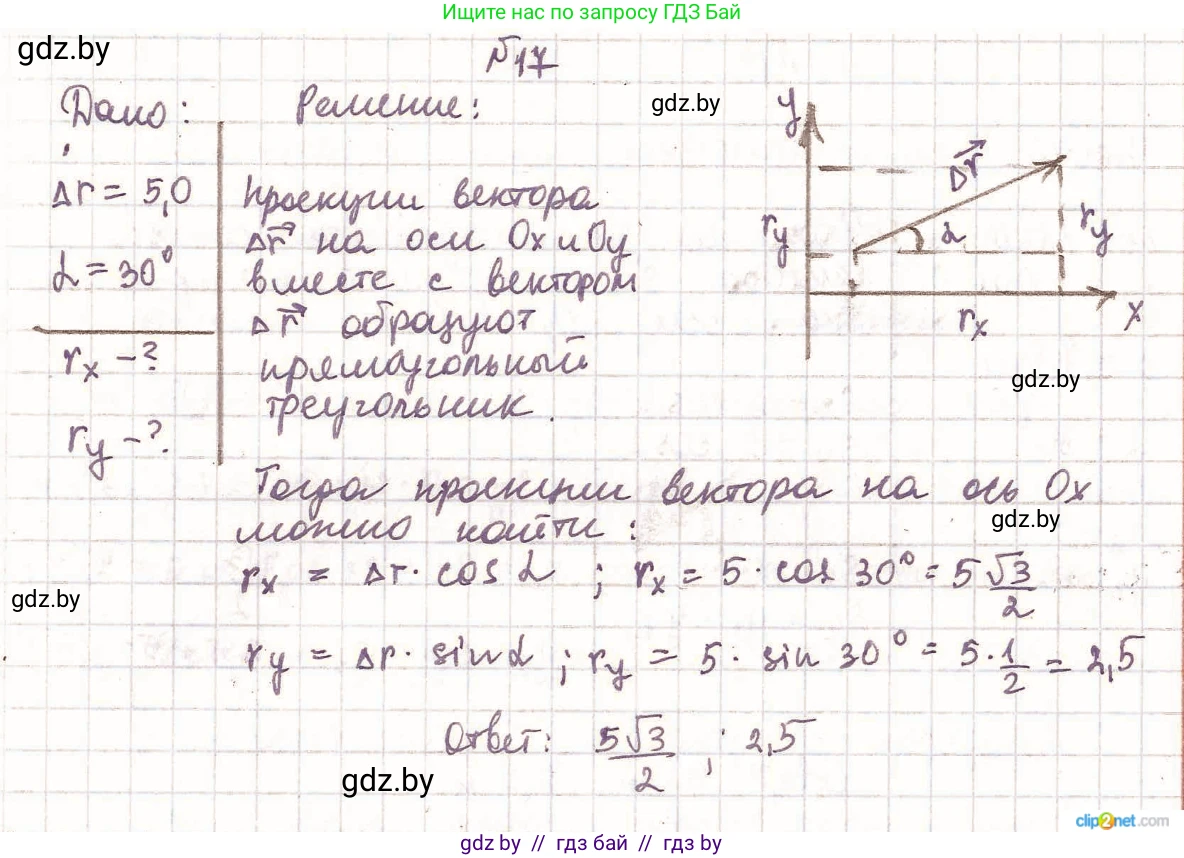 Ищите нас по запросу ГДЗ Бай
gdz.by
№17
Дано:
Решение:
gdz.by
Δr = 5,0
α = 30°
rx - ?
ry - ?
Проекции вектора
Δr⃗ на оси Ox и Oy
вместе с вектором
Δr⃗ образуют
прямоугольный
треугольник.
y
Δr⃗
ry
α
ry
rx
x
gdz.by
Тогда проекции вектора на ось Ox
можно найти:
gdz.by
rx = Δr · cos α ; rx = 5 · cos 30° = 5 √3/2
gdz.by
ry = Δr · sin α ; ry = 5 · sin 30° = 5 · 1/2 = 2,5
Ответ: 5√3/2 ; 2,5
gdz.by
clip2net.com
gdz.by // гдз бай // gdz by